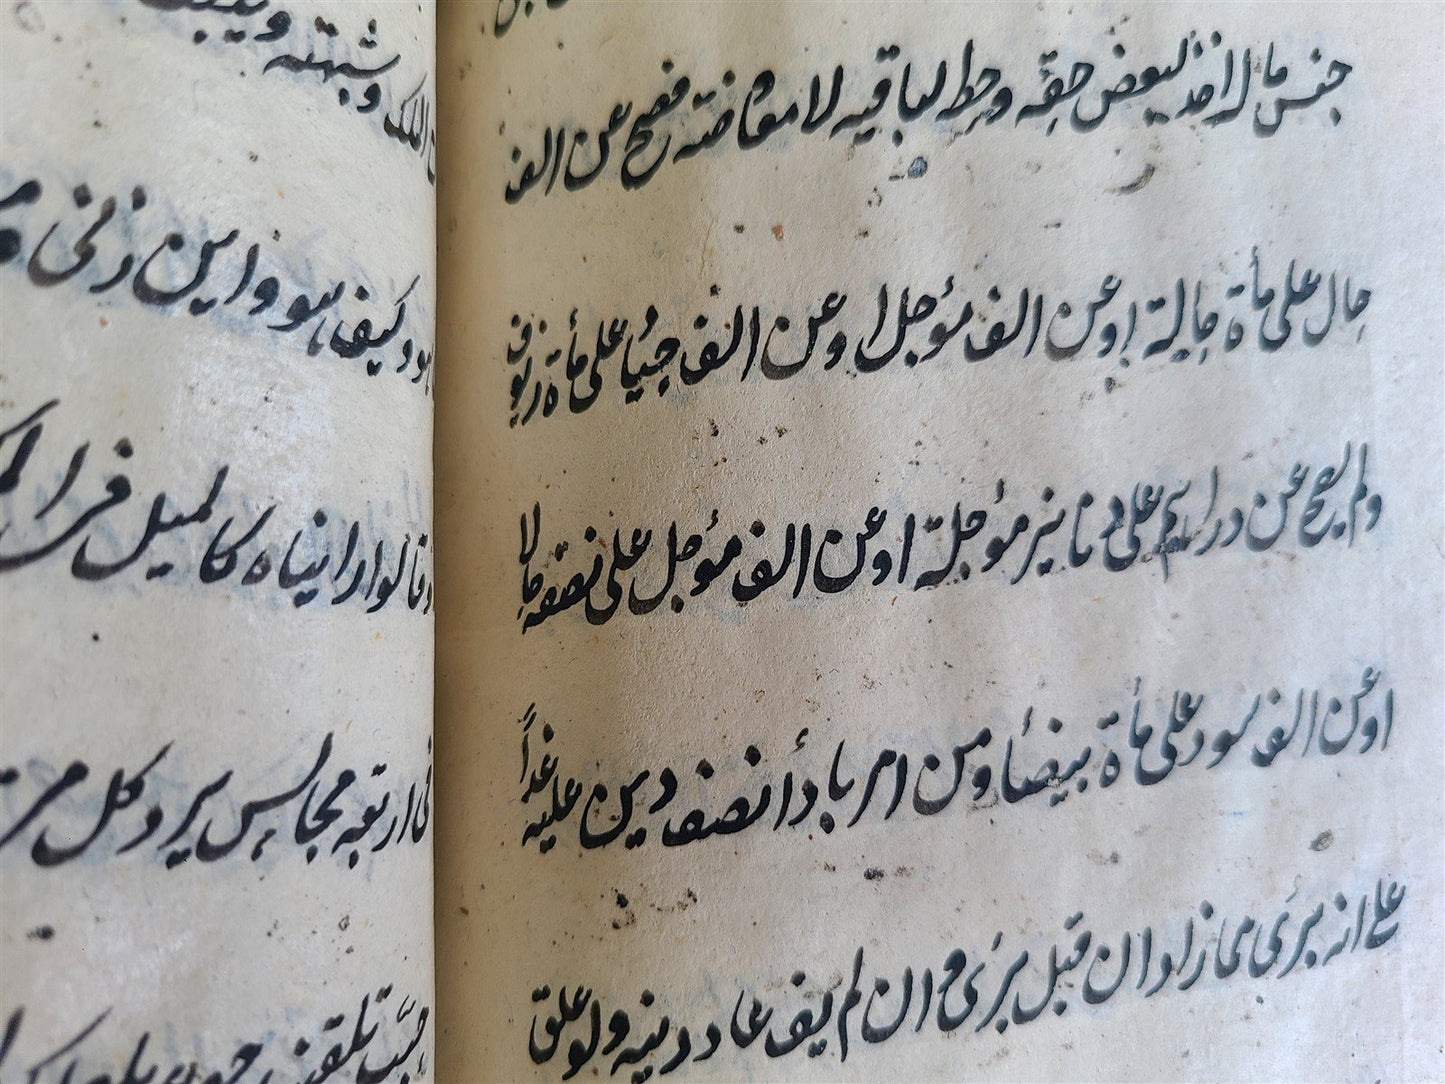 جنس ما له اخذ لبعض حقه وحط لباقيه لا معاوضة فصح عن الف
حال على مأة حالية او عن الف مؤجل او عن الف جيا على مأة زيوف
ولم يصح عن دراهم على دنانير مؤجلة او عن الف مؤجل على نصفه حالا
او عن الف سود على مأة بيضا ومن امر باداء نصف دين عليه غداً
على انه برئ مما زاد ان قبل برئ وان لم يف عاد دينه ولو علق
الملك وشبهته و
هو وكيف هو واين زنى
وقالوا رايناه كالميل فى
فى اربعة مجالس يرد كل مرة